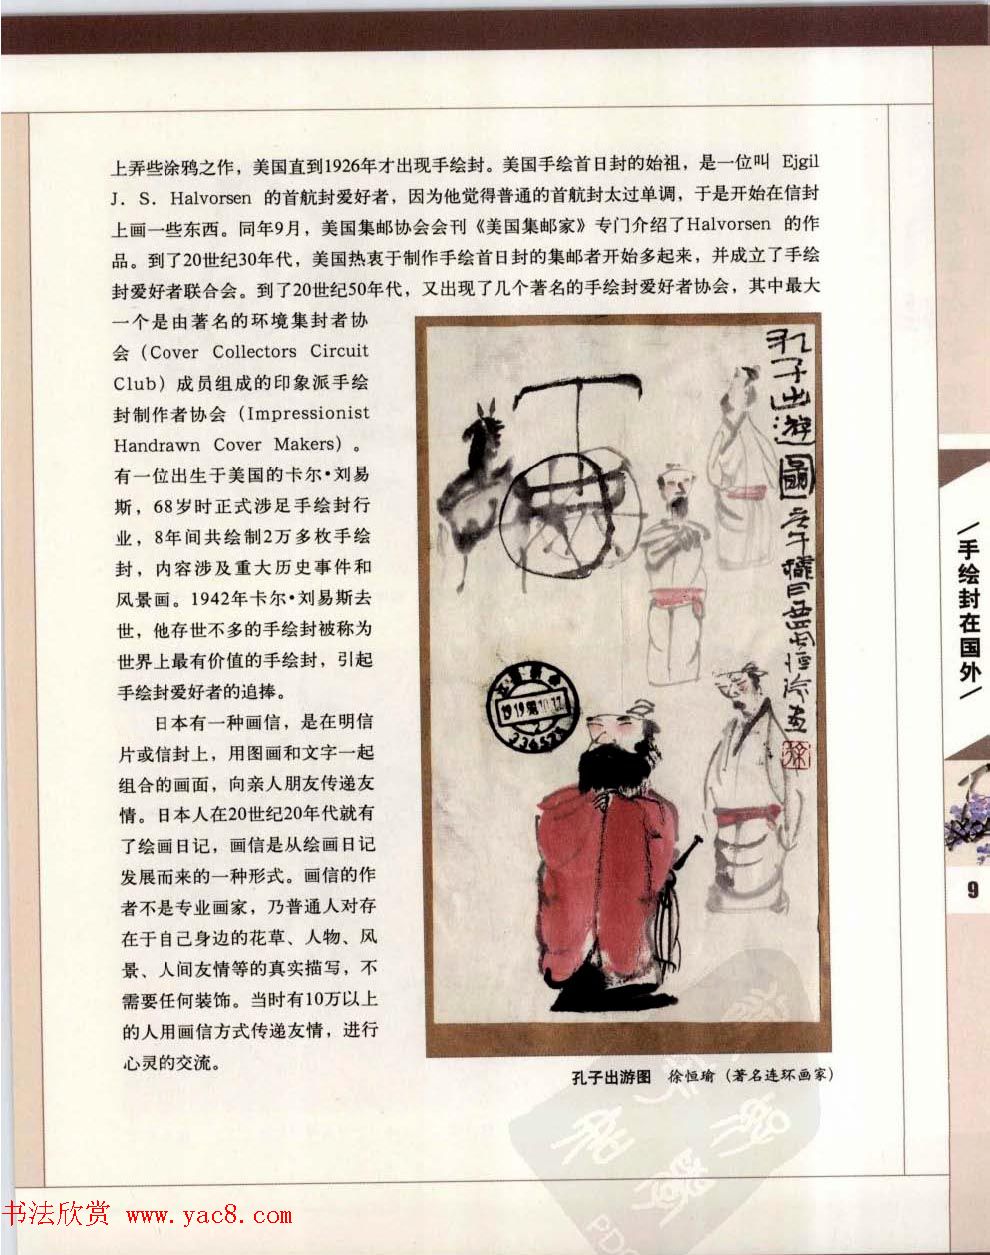 上弄些涂鸦之作，美国直到1926年才出现手绘封。美国手绘首日封的始祖，是一位叫 Ejgil
J．S．Halvorsen 的首航封爱好者，因为他觉得普通的首航封太过单调，于是开始在信封
上画一些东西。同年9月，美国集邮协会会刊《美国集邮家》专门介绍了Halvorsen 的作
品。到了20世纪30年代，美国热衷于制作手绘首日封的集邮者开始多起来，并成立了手绘
封爱好者联合会。到了20世纪50年代，又出现了几个著名的手绘封爱好者协会，其中最大
一个是由著名的环境集封者协
会（Cover Collectors Circuit
Club）成员组成的印象派手绘
封制作者协会（Impressionist
Handrawn Cover Makers）。
有一位出生于美国的卡尔•刘易
斯，68岁时正式涉足手绘封行
业，8年间共绘制2万多枚手绘
封，内容涉及重大历史事件和
风景画。1942年卡尔•刘易斯去
世，他存世不多的手绘封被称为
世界上最有价值的手绘封，引起
手绘封爱好者的追捧。
日本有一种画信，是在明信
片或信封上，用图画和文字一起
组合的画面，向亲人朋友传递友
情。日本人在20世纪20年代就有
了绘画日记，画信是从绘画日记
发展而来的一种形式。画信的作
者不是专业画家，乃普通人对存
在于自己身边的花草、人物、风
景、人间友情等的真实描写，不
需要任何装饰。当时有10万以上
的人用画信方式传递友情，进行
心灵的交流。
孔子出游图
孔子出游图 徐恒瑜（著名连环画家）
/手绘封在国外/
9
书法欣赏 www.yac8.com